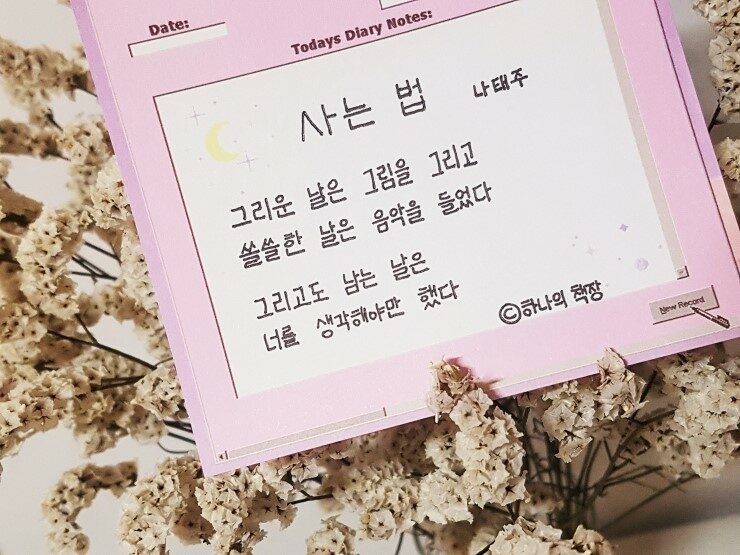 Date:
Todays Diary Notes:
사는 법 나태주
그리운 날은 그림을 그리고
쓸쓸한 날은 음악을 들었다
그리고도 남는 날은
너를 생각해야만 했다
©하나의 책장
New Record